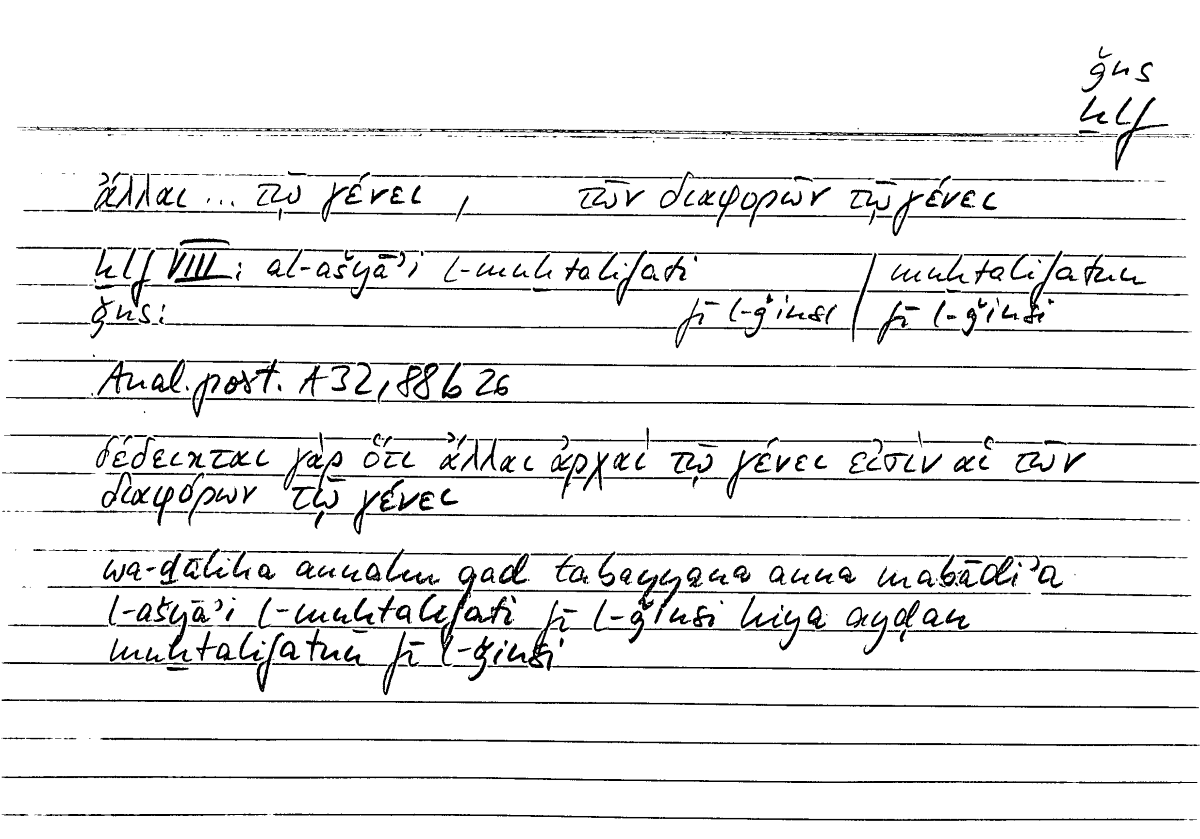 ǧns
ḫlf
ἄλλαι ... τῷ γένει , τῶν διαφορῶν τῷ γένει
ḫlf VIII: al-ašyāʾi l-muḫtalifati | muḫtalifatun
ǧns: fī l-ǧinsi | fī l-ǧinsi
Anal. post. A 32, 88 b 26
δέδεικται γὰρ ὅτι ἄλλαι ἀρχαὶ τῷ γένει εἰσὶν αἱ τῶν
διαφόρων τῷ γένει
wa-ḏālika annahu qad tabayyana anna mabādiʾa
l-ašyāʾi l-muḫtalifati fī l-ǧinsi hiya ayḍan
muḫtalifatun fī l-ǧinsi